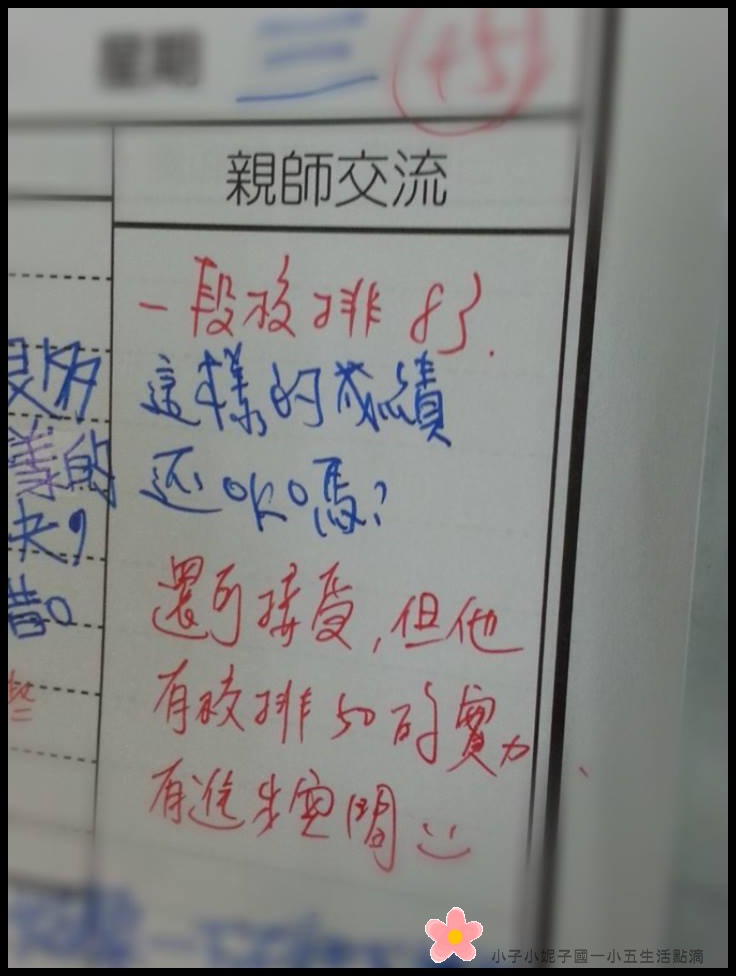 星期 三 +5
親師交流
一段校排83.
這樣的成績
还OKO嗎?
還可接受,但他
有校排50的實力
有進步空間
的
昔。
小子小妮子國一小五生活點滴